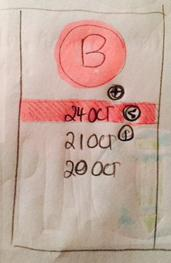 B
24 OCT
21 OCT
20 OCT